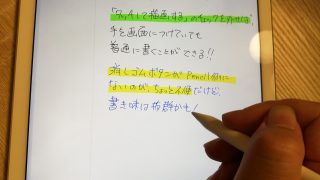 「タッチして描画する」のチェックを外せば、
手を画面につけていても
普通に書くことができる!!
消しゴムボタンがPencil側に
ないのが、ちょっと不便だけど、
書き味は抜群かも!